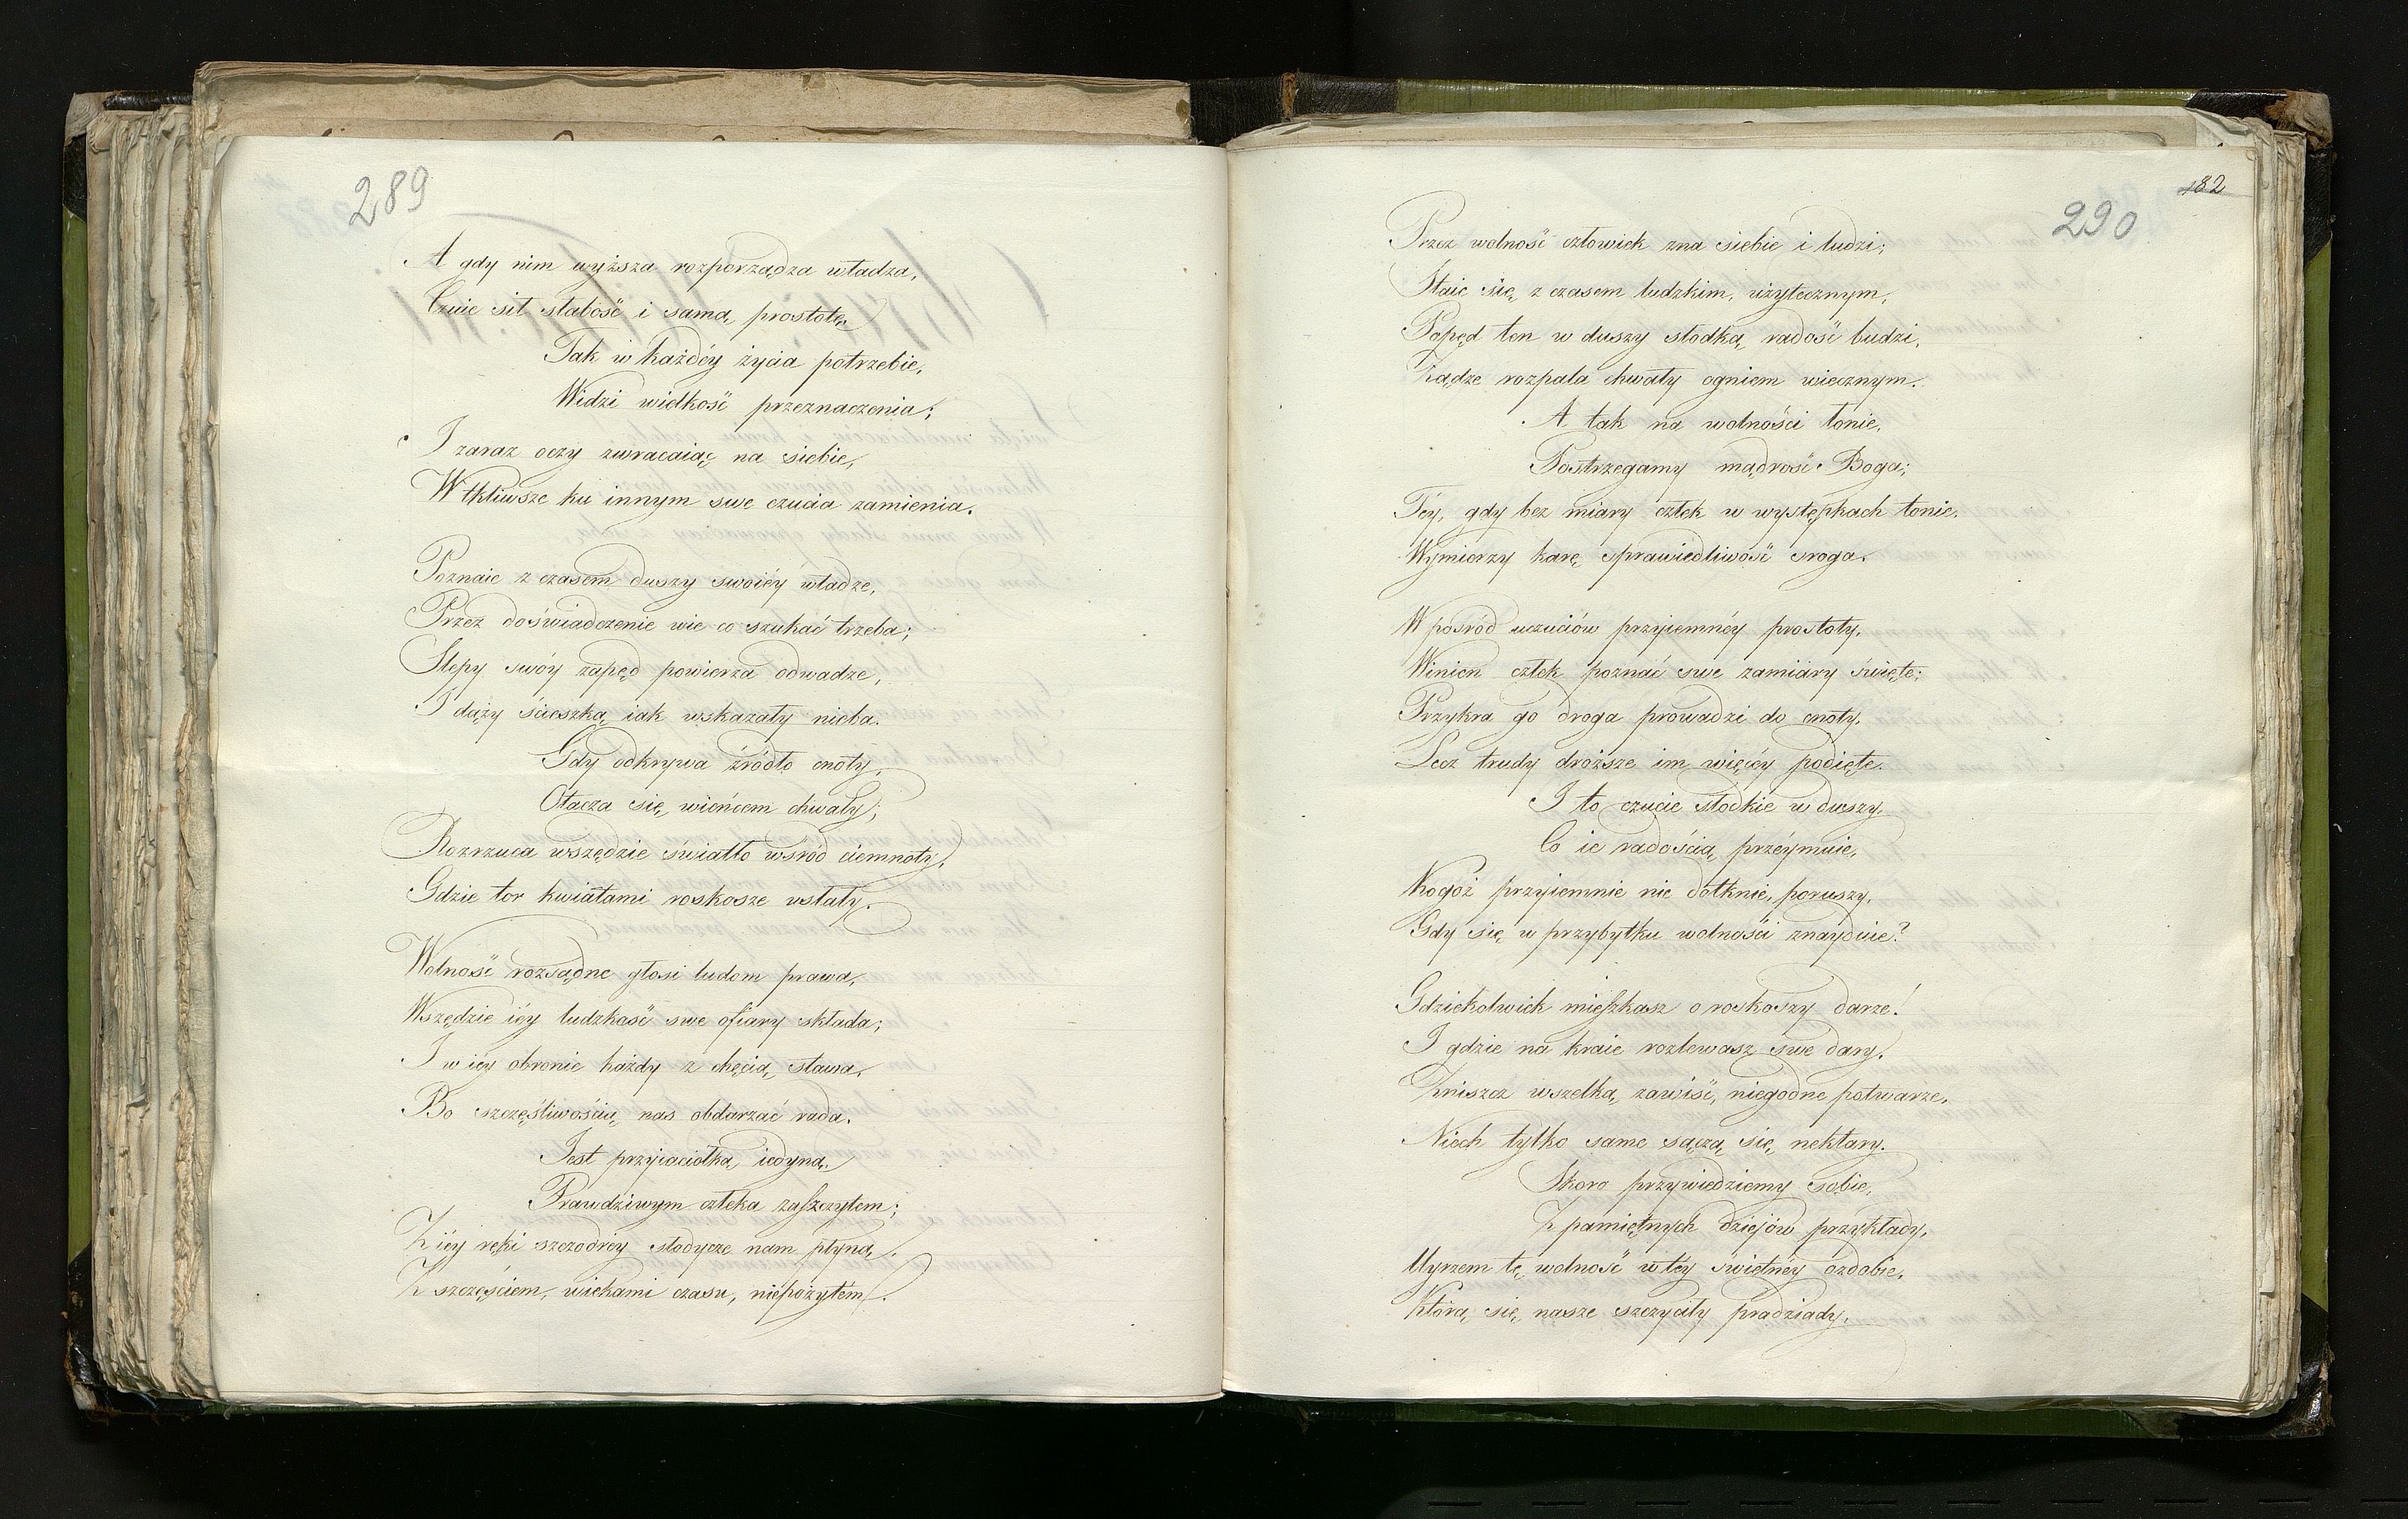 289
A gdy nim wyższa rozporządza władza,
Czuie sił słabość i samą prostotę.
Tak w każdéy życia potrzebie,
Widzi wielkość przeznaczenia;
I zaraz oczy zwracaiąc na siebie,
W tkliwsze ku innym swe czucia zamienia.
Poznaie z czasem duszy swoiéy władze,
Przez doświadczenie wie co szukać trzeba;
Slepy swóy zapęd powierza odwadze,
I dąży ścieszką iak wskazały nieba.
Gdy odkrywa źródło cnoty,
Otacza się wieńcem chwały;
Rozrzuca wszędzie światło wsród ciemnoty,
Gdzie tor kwiatami roskosze usłały.
Wolność rozsądne głosi ludom prawa,
Wszędzie iéy ludzkość swe ofiary składa;
I w iéy obronie każdy z chęcią stawa,
Bo szczęśliwością nas obdarzać rada.
Jest przyiaciołką iedyną,
Prawdziwym człeka zaszczytem;
Z iéy ręki szczodréy słodycze nam płyną,
Z szczęściem, wiekami czasu, niepożytém.
182
290
Przez wolność człowiek zna siebie i ludzi;
Staie się z czasem ludzkim, użytecznym,
Popęd ten w duszy słodką radość budzi,
Żądze rozpala chwały ogniem wiecznym.
A tak na wolności łonie,
Postrzegamy mądrość Boga;
Téy, gdy bez miary człek w występkach tonie,
Wymierzy karę sprawiedliwość sroga.
W pośród uczuciów przyiemnéy prostoty,
Winien człek poznać swe zamiary święte;
Przykra go droga prowadzi do cnoty,
Lecz trudy droższe im więcéy podięte.
I to czucie słodkie w duszy,
Co ie radością przéymuie,
Kogóż przyiemnie nie dotknie, poruszy,
Gdy się w przybytku wolności znayduie?
Gdziekolwiek mieszkasz o roskoszy darze!
I gdzie na kraie rozlewasz swe dary,
Zniszcz wszelką zawiść, niegodne potwarze,
Niech tylko same sączą się nektary.
Skoro przywiedziemy sobie,
Z pamiętnych dziejów przykłady,
Uyrzem tę wolność w téy świetnéy ozdobie,
Którą się nasze szczyciły pradziady.